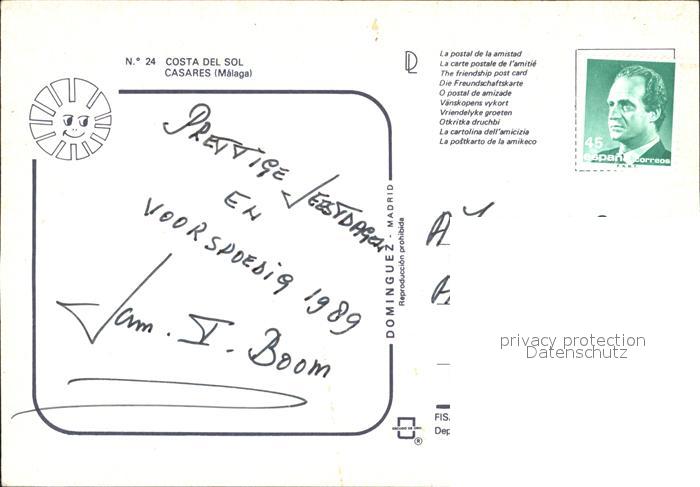 N.° 24 COSTA DEL SOL
CASARES (Málaga)
PRETTIGE FEESTDAGEN
EN
VOORSPOEDIG 1989
Fam. V. Boom
DOMINGUEZ - MADRID
Reproducción prohibida
La postal de la amistad
La carte postale de l'amitié
The friendship post card
Die Freundschaftskarte
O postal de amizade
Vänskopens vykort
Vriendelyke groeten
Otkritka druchbi
La cartolina dell'amicizia
La poŝtkarto de la amikeco
45
españa correos
privacy protection
Datenschutz
FIS
Dep
®